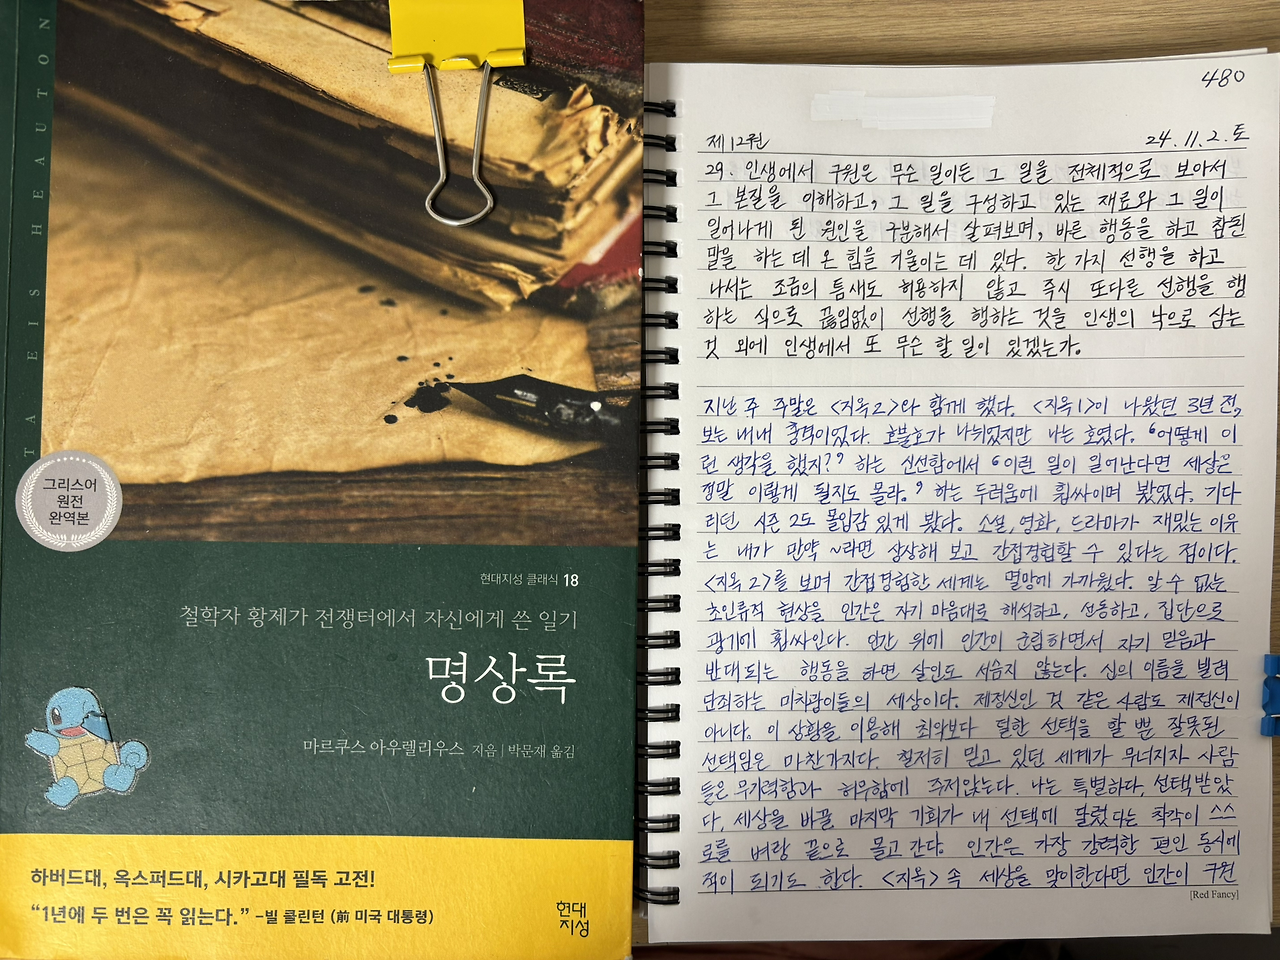 TA EIS HEAUTON
그리스어
원전
완역본
현대지성 클래식 18
철학자 황제가 전쟁터에서 자신에게 쓴 일기
명상록
마르쿠스 아우렐리우스 지음 | 박문재 옮김
하버드대, 옥스퍼드대, 시카고대 필독 고전!
“1년에 두 번은 꼭 읽는다.” –빌 클린턴 (前 미국 대통령)
현대
지성
480
제12권 24.11.2.토
29. 인생에서 구원은 무슨 일이든 그 일을 전체적으로 보아서
그 본질을 이해하고, 그 일을 구성하고 있는 재료와 그 일이
일어나게 된 원인을 구분해서 살펴보며, 바른 행동을 하고 참된
말을 하는 데 온 힘을 기울이는 데 있다. 한 가지 선행을 하고
나서는 조금의 틈새도 허용하지 않고 즉시 또다른 선행을 행
하는 식으로 끊임없이 선행을 행하는 것을 인생의 낙으로 삼는
것 외에 인생에서 또 무슨 할 일이 있겠는가.
지난 주 주말은 <지옥2>와 함께 했다. <지옥1>이 나왔던 3년 전,
보는 내내 충격이었다. 호불호가 나뉘었지만 나는 호였다. “어떻게 이
런 생각을 했지?” 하는 신선함에서 “이런 일이 일어난다면 세상은
정말 이렇게 될지도 몰라.” 하는 두려움에 휩싸이며 봤었다. 기다
리던 시즌 2도 몰입감 있게 봤다. 소설, 영화, 드라마가 재밌는 이유
는 내가 만약 ~라면 상상해 보고 간접경험할 수 있다는 점이다.
<지옥 2>를 보며 간접경험한 세계는 멸망에 가까웠다. 알 수 없는
초인류적 현상을 인간은 자기 마음대로 해석하고, 선동하고, 집단으로
광기에 휩싸인다. 인간 위에 인간이 군림하면서 자기 믿음과
반대되는 행동을 하면 살인도 서슴지 않는다. 신의 이름을 빌려
단죄하는 미치광이들의 세상이다. 제정신인 것 같은 사람도 제정신이
아니다. 이 상황을 이용해 최악보다 덜한 선택을 할 뿐 잘못된
선택임은 마찬가지다. 철저히 믿고 있던 세계가 무너지자 사람
들은 무기력함과 허무함에 주저앉는다. 나는 특별하다, 선택받았
다, 세상을 바꿀 마지막 기회가 내 선택에 달렸다는 착각이 스스
로를 벼랑 끝으로 몰고 간다. 인간은 가장 강력한 편인 동시에
적이 되기도 한다. <지옥> 속 세상을 맞이한다면 인간이 구원
[Red Fancy]